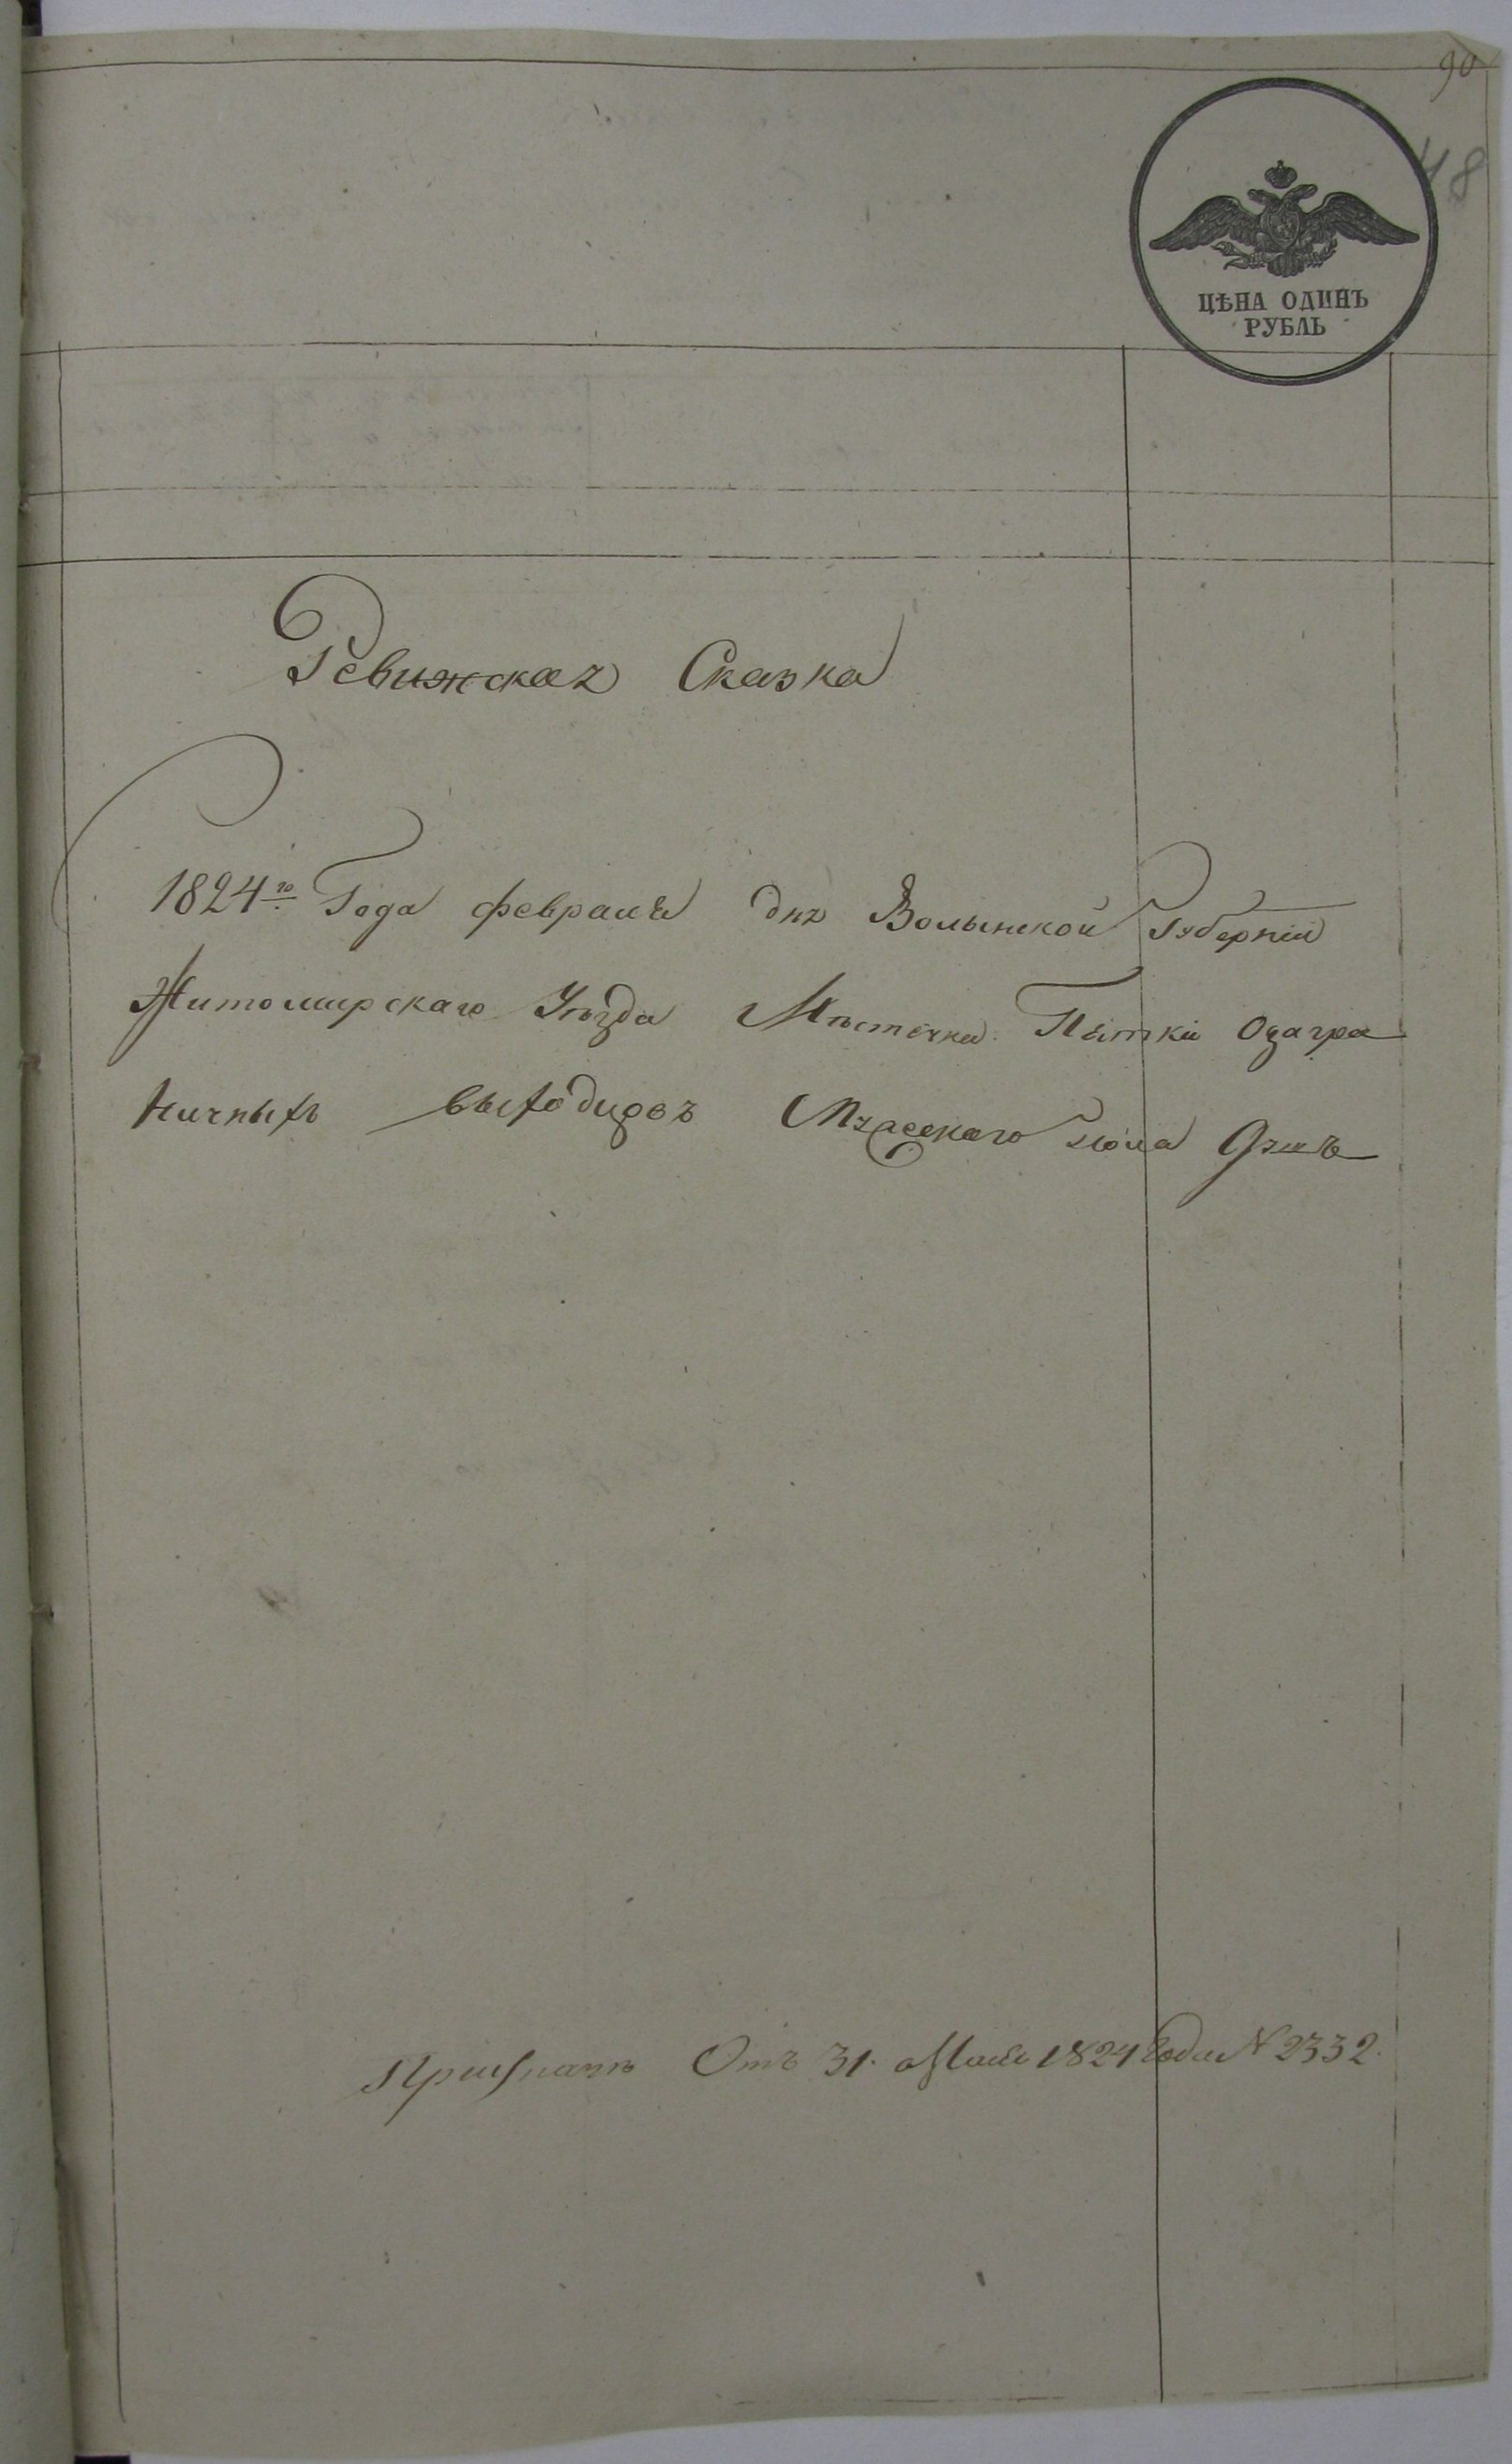 90
48
ЦѢНА ОДИНЪ
РУБЛЬ
Ревижская Сказка
1824го Года февраля дня Волынской Губернiи
Житомирскаго Уѣзда Мѣстечка Пятки Озагра
ничныхъ выходцовъ
Отъ 31. Мая 1824 года N 2332.